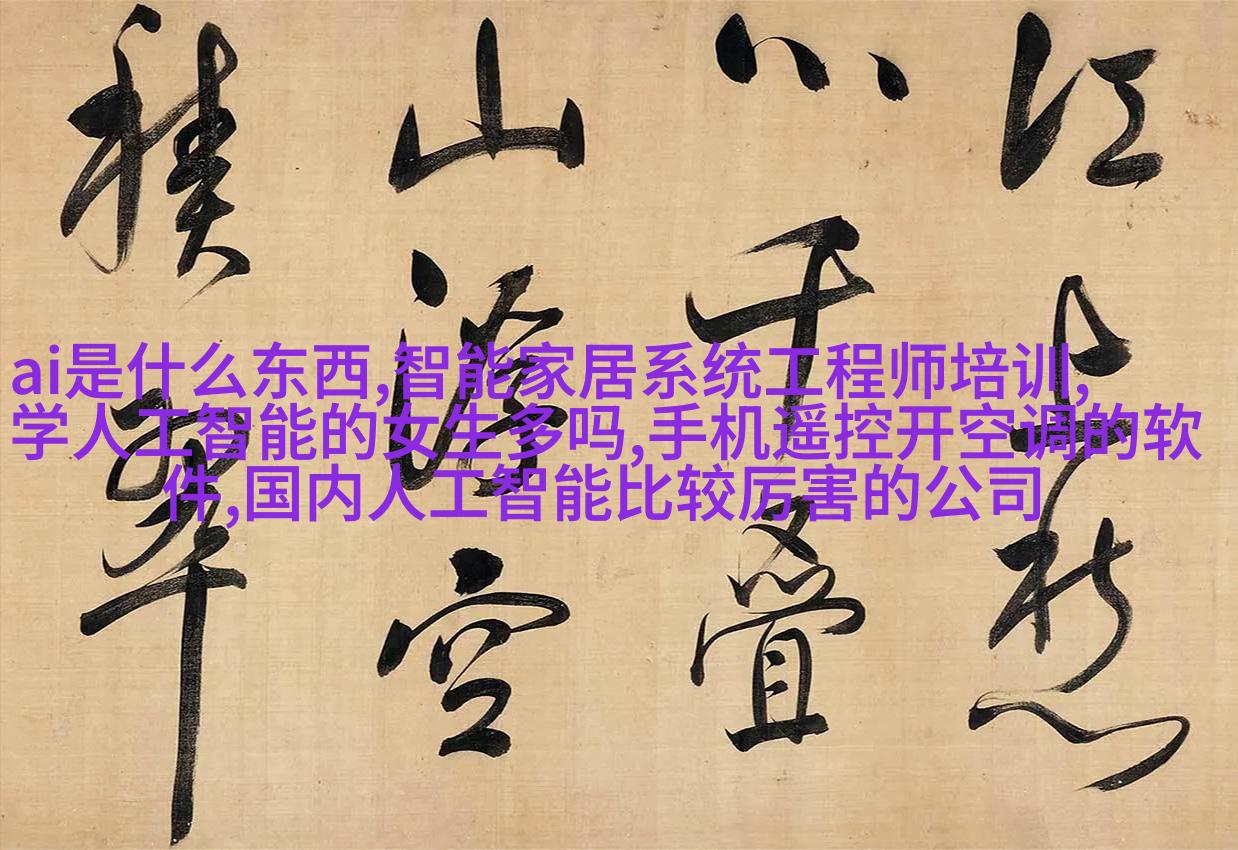 江上愁
心千疊
山浮空
積翠
ai是什么东西,智能家居系统工程师培训,
学人工智能的女生多吗,手机遥控开空调的软
件,国内人工智能比较厉害的公司